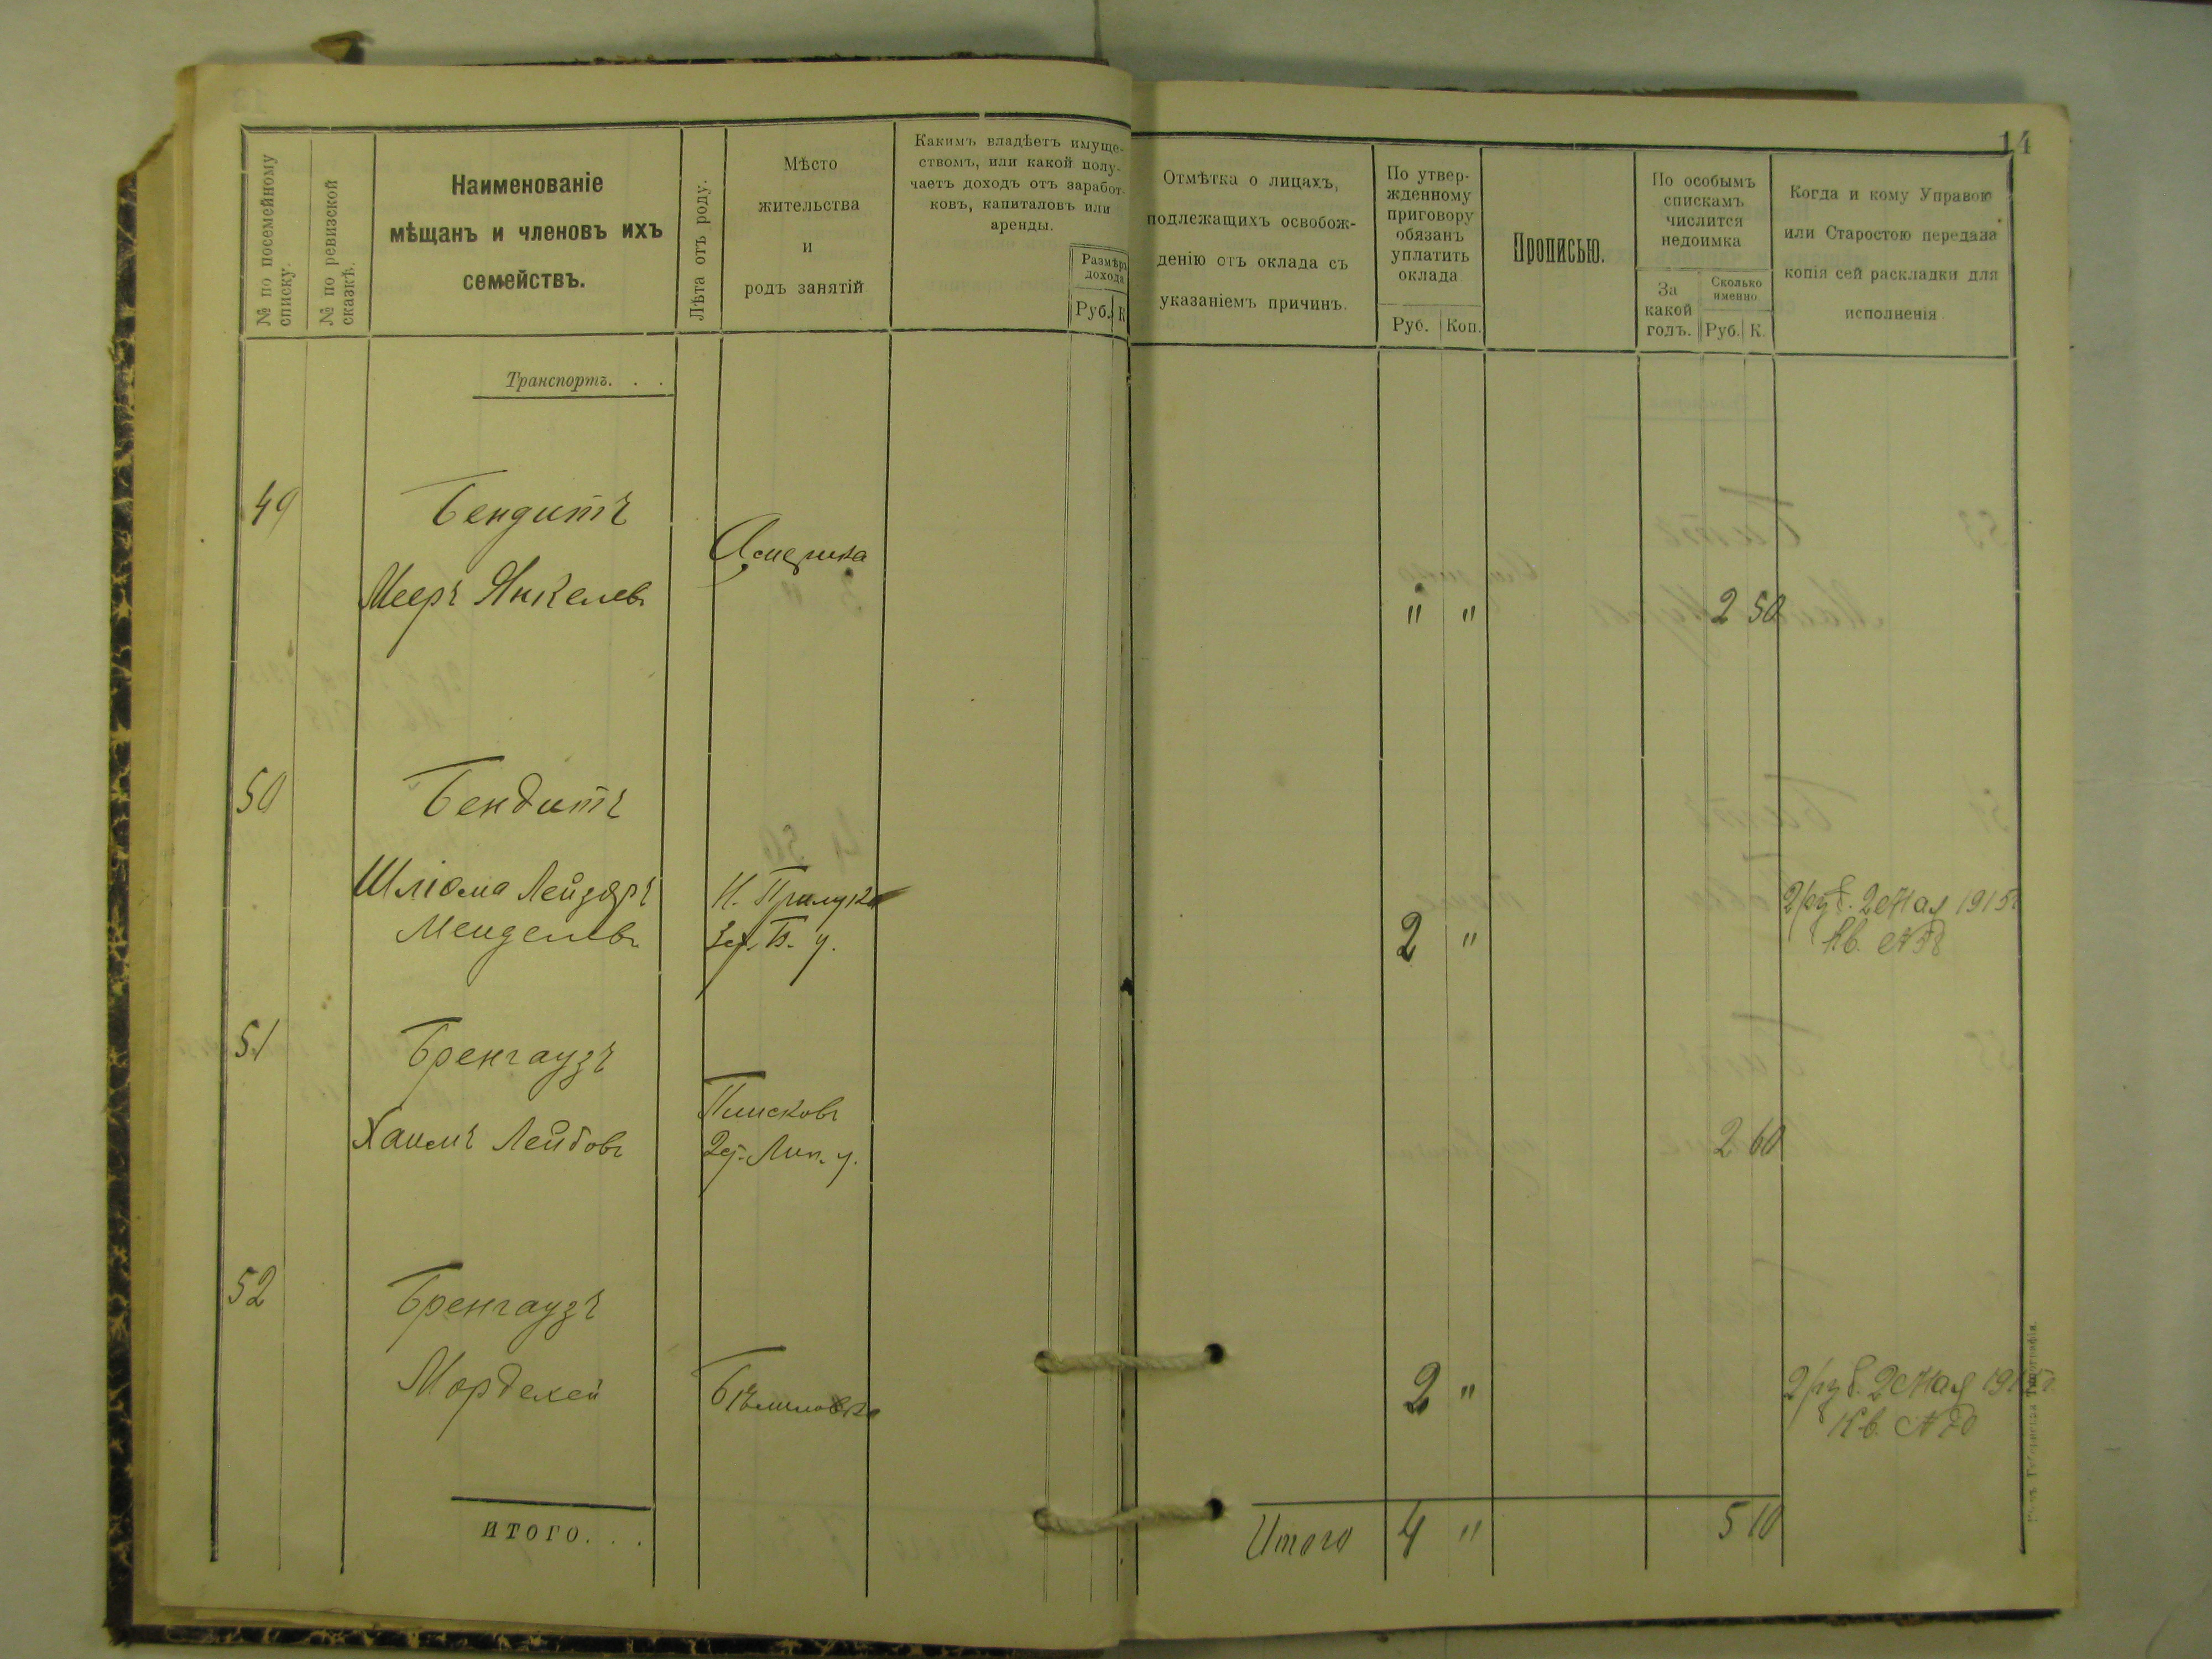 14
№ по посемейному списку.
№ по ревизской сказкѣ.
Наименованіе
мѣщанъ и членовъ ихъ
семействъ.
Лѣта отъ роду.
Мѣсто
жительства
и
родъ занятій
Какимъ владѣетъ имуще-
ствомъ, или какой полу-
чаетъ доходъ отъ заработ-
ковъ, капиталовъ или
аренды.
Размѣръ
дохода
Руб. К
Отмѣтка о лицахъ,
подлежащихъ освобож-
денію отъ оклада съ
указаніемъ причинъ.
По утвер-
жденному
приговору
обязанъ
уплатить
оклада
Руб. Коп.
Прописью.
По особымъ
спискамъ
числится
недоимка
За
какой
годъ.
Сколько
именно
Руб. К.
Когда и кому Управою
или Старостою передана
копія сей раскладки для
исполненія
Транспортъ. . .
49 Бендитъ
Америка
Мееръ Янкелев. " " 2 50
50 Бендитъ
Шлiома Лейзоръ Н. Прилука 2 руб. 2 Мая 1915г.
Менделев. Б. у. 2 " Кв. №
51 Бренгаузъ
Плисков.
Хаимъ Лейбов. Лип. у. 2 60
52 Бренгаузъ
Мордехей Бѣлиловка 2 " 2 руб. 2 Мая
Кв. №
ИТОГО. . .
Итого 4 " 5 10
Губернская Типографія.